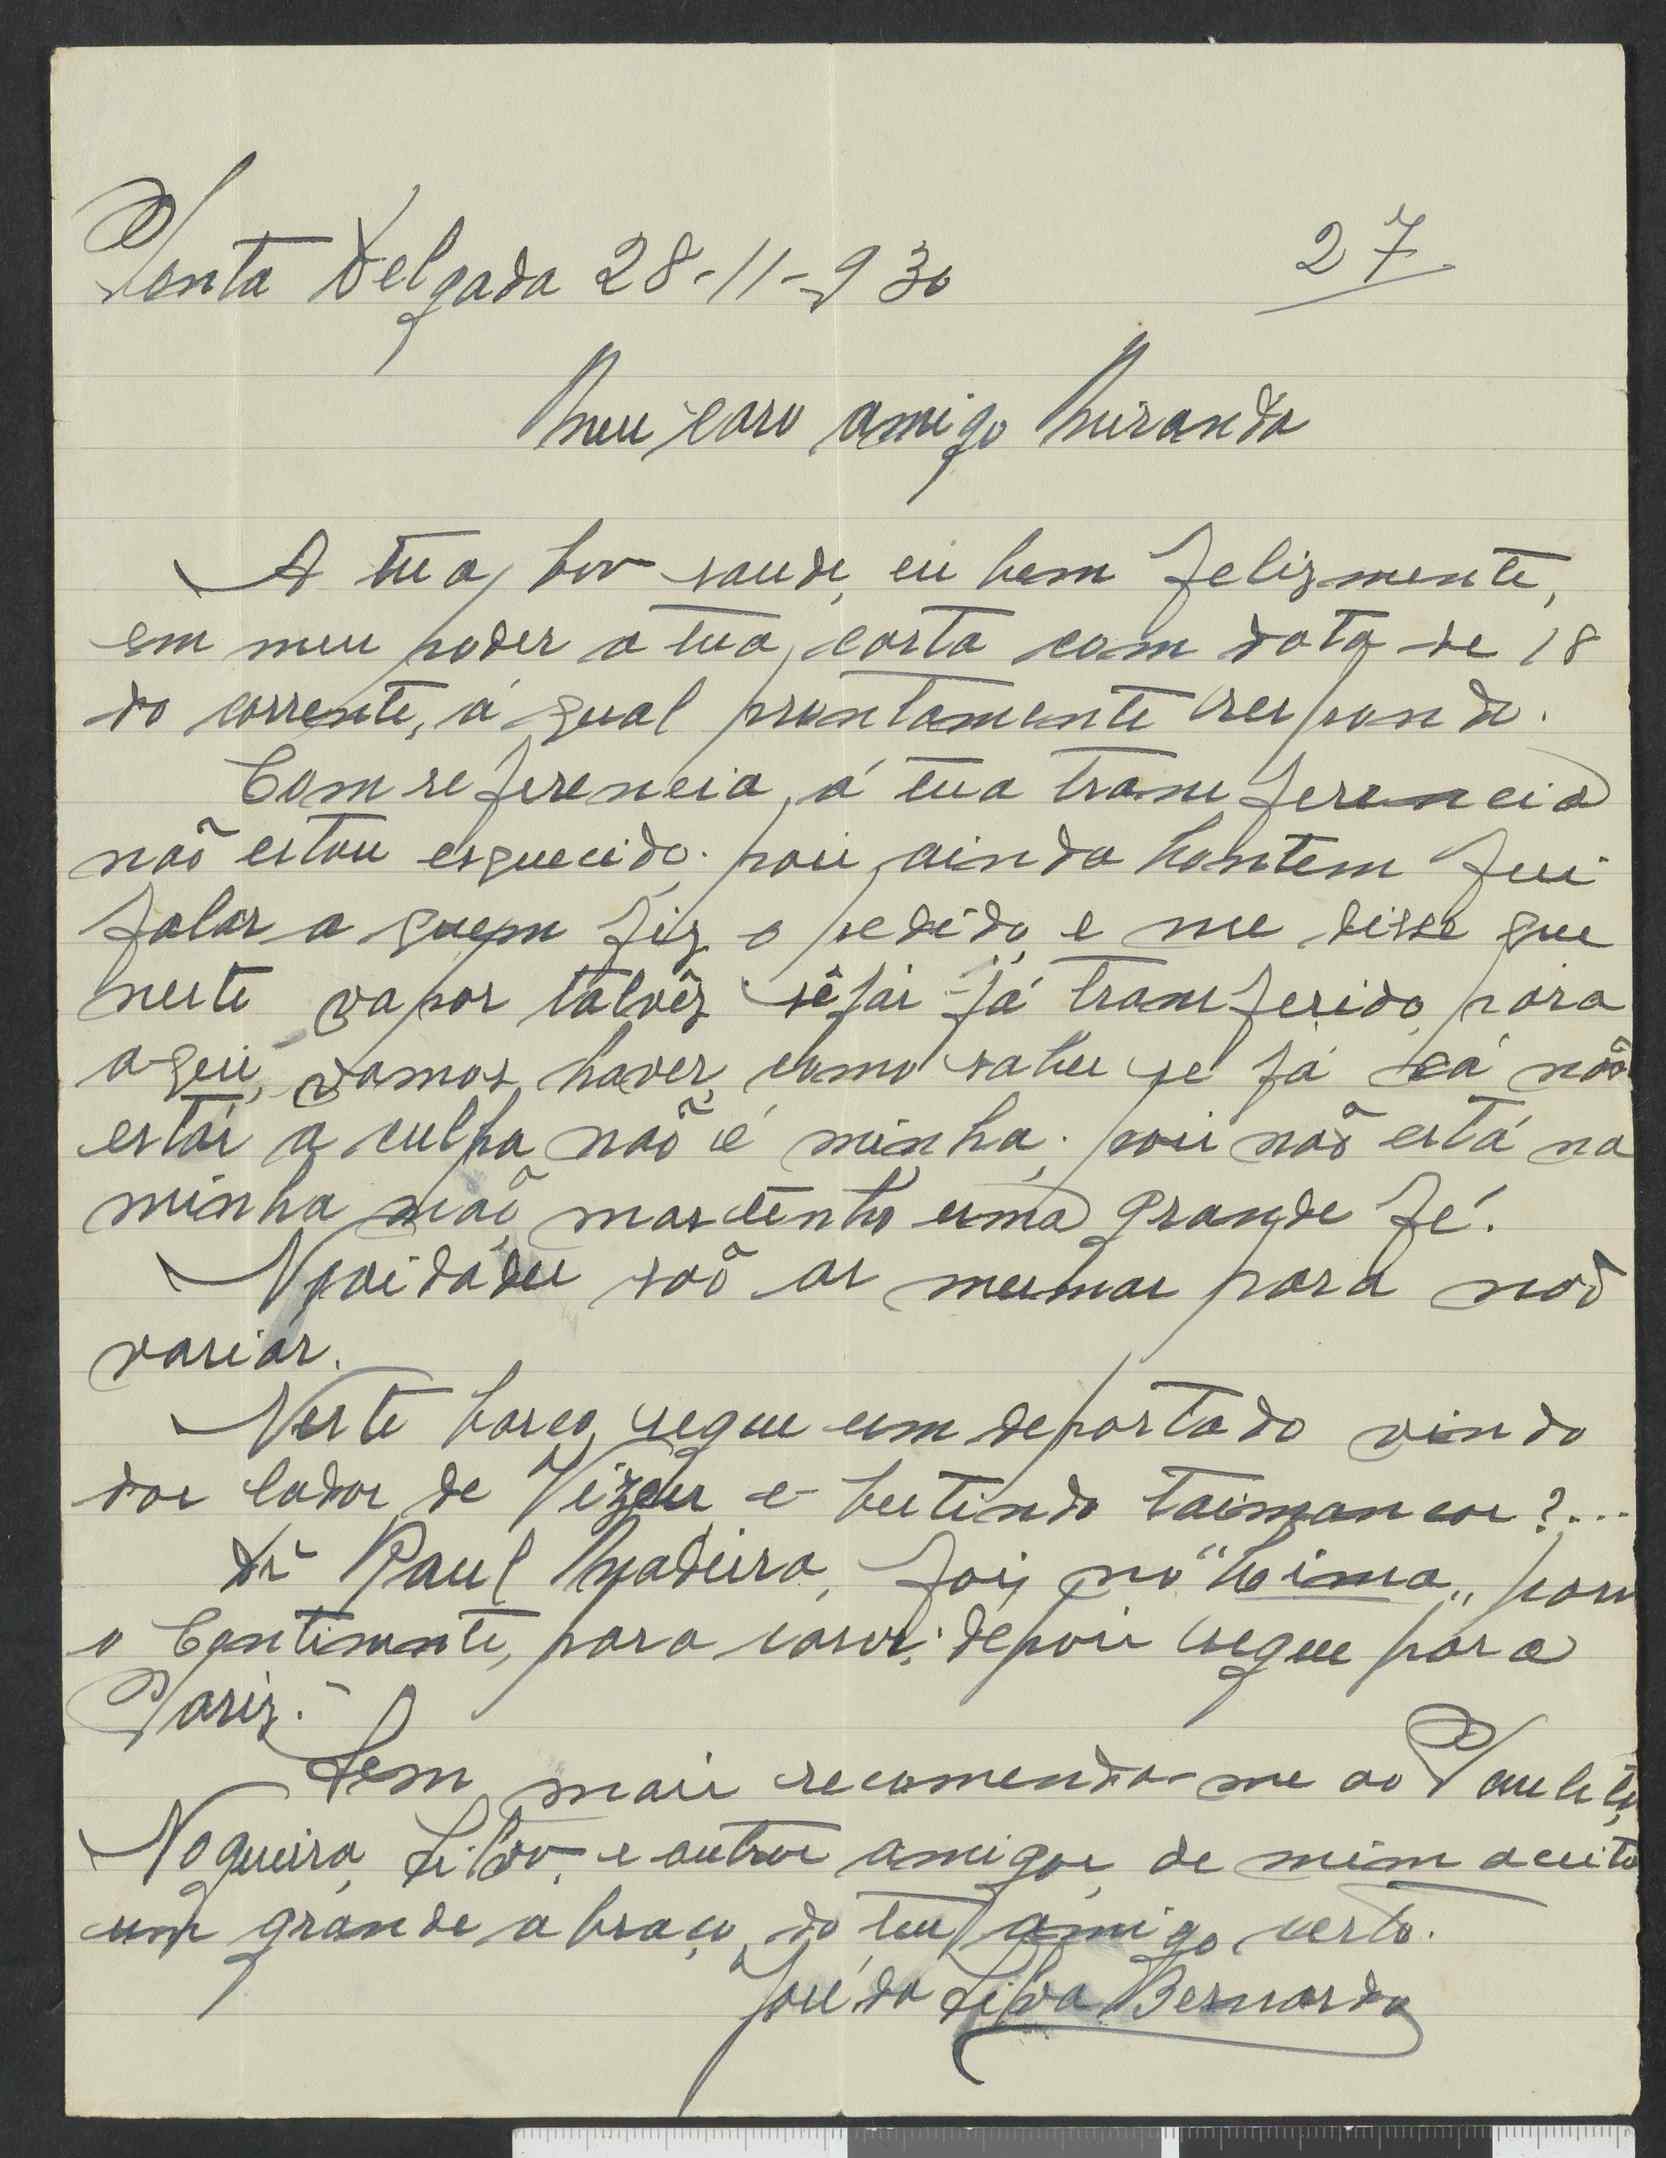 Ponta Delgada 28-11-930
27
Meu caro amigo Miranda
A tua boa saude, eu bem felizmente,
em meu poder a tua carta com data de 18
do corrente, á qual prontamente respondo.
Com referencia, á tua transferencia
não estou esquecido. pois ainda hontem fui
falar a quem fiz o pedido, e me disse que
neste vapor talvêz sêjas já transferido para
aqui, vamos haver, como sabes se já cá não
estás a culpa não é minha, pois não está na
minha mão, mas tenho uma grande fé.
Novidades são as mesmas para não
variar.
Neste barco segue um deportado vindo
dos lados de Vizeu e bestindo taimancos?...
Dr Paul Madeira, foi, no "Lima" para
o Continente, para casos: depois segue para
Pariz.
Sem mais recomenda-me ao Pauleta,
Nogueira, Silva, e outros amigos, de mim aceita
um grande abraço, do teu amigo certo.
José da Silva Bernardo